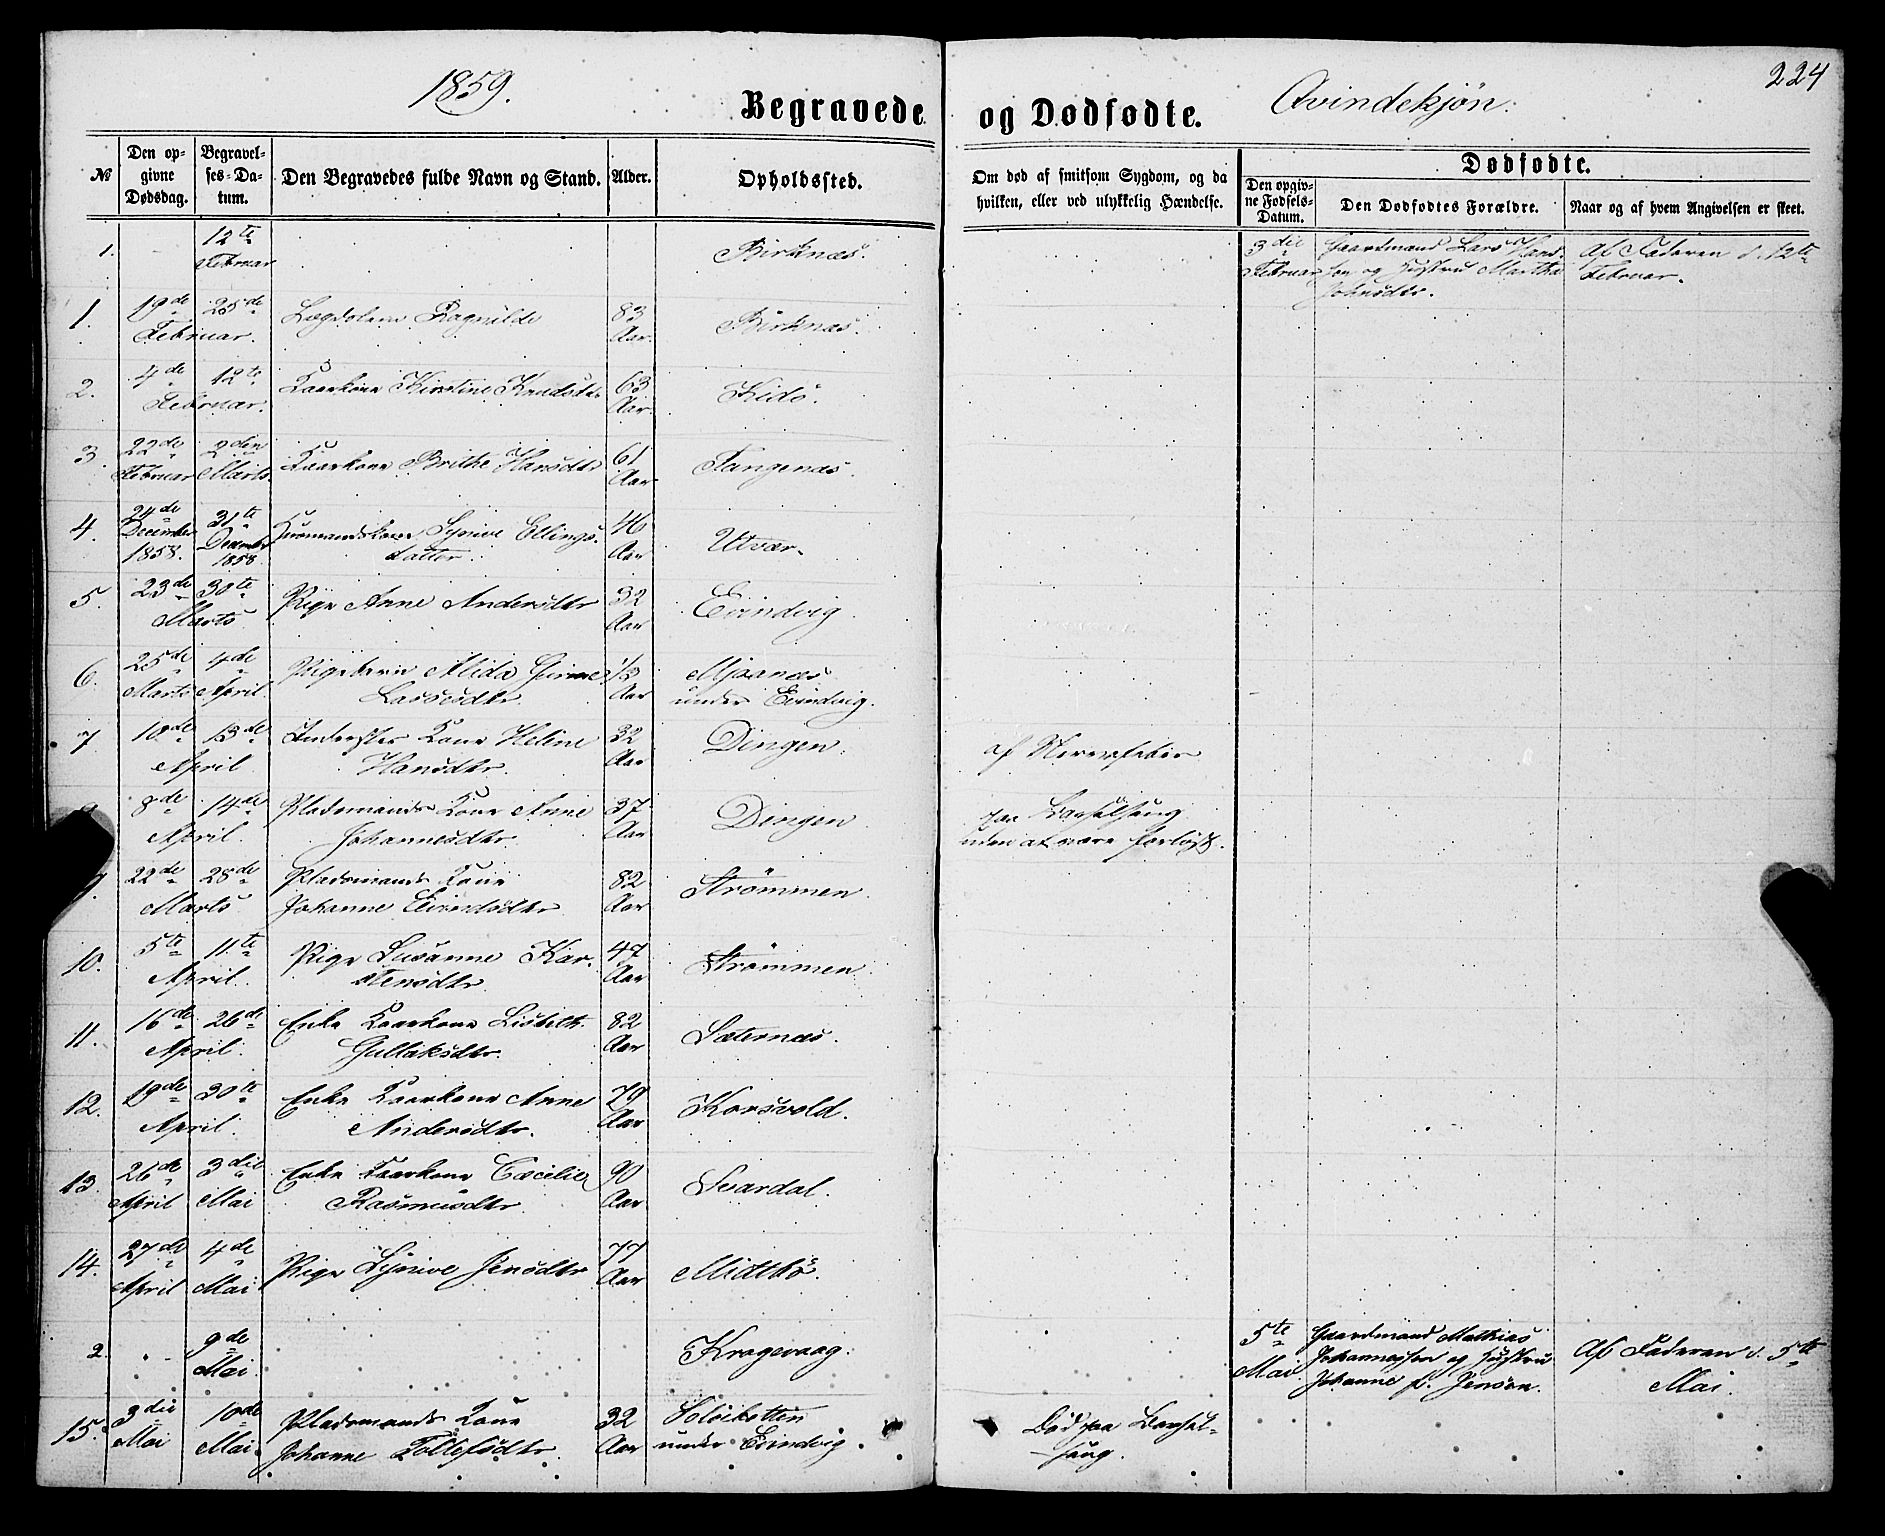 1859.
Begravede og Dødfødte. Qvindekjön.
224
№
Den op-
givne
Dødsdag.
Begravel-
ses-Da-
tum.
Den Begravedes fulde Navn og Stand.
Alder.
Opholdssted.
Om død af smitsom Sygdom, og da
hvilken, eller ved ulykkelig Hændelse.
Dødfødte.
Den opgiv-
ne Fødsels-
Datum.
Den Dødfødtes Forældre.
Naar og af hvem Angivelsen er skeet.
1. 12te Februar Birknæs. 3die Februar Gaardmand Lars Hans-
sen og Hustru Martha
Johnsdtr.
Af Faderen d. 12te
Februar.
1. 19de 25de Februar. Lægdslem Ragnilde 83 Aar Birknæs.
2. 4de 12te Februar. Kaarkone Kirstine Knudsdtr 63 Aar Kidö.
3. 22de Februar 2den Marts. Kaarkone Brithe Hansdtr 61 Aar Tangenæs.
4. 24de December 1858. 31te December 1858 Synive Ellings-
datter. 46 Aar Utvær.
5. 23de 30te Marts Pige Anne Andersdtr 32 Aar Evindvig
6. 25de Marts 4de April Pigebarn Alida
Lassesdtr. 1/3 Aar Mjaanæs
under Evindvig.
7 10de 13de April Inderstes Kone Heline
Hansdtr. 32 Aar Dingen. af Nervefeber
8de 14de April Pladsmands Kone Anne
Johannesdtr. 37 Aar Dingen paa Barselseng
uden at være forløst.
9. 22de 28de Marts Pladsmands Kone
Johanne Eivindsdtr 82 Aar Strömmen.
10. 5te 11te April. Pige Susanne Kar-
stensdtr. 47 Aar Strömmen.
11. 16de 26de April. Enke Kaarkone Lisbeth
Gullaksdtr. 82 Aar Sæternæs.
12. 19de 30te April. Enke Kaarkone Anne
Andersdtr. 79 Aar Korsvold.
13. 26de April 3die Mai Enke Kaarkone Cæcilie
Rasmusdtr 90 Aar Svardal.
14. 27de April 4de Mai Pige Synive Jensdtr 77 Aar Midttö.
2. 9de Mai. Kragevaag. 5te Mai Gaardmand Mathias
Johannessen og Hustru
Johanne f. Jensen.
Af Faderen d. 5te
Mai.
15. 3die Mai 10de Mai. Pladsmands Kone
Johanne Tollefsdtr. 32 Aar
under Evindvig. Död paa Barsel-
seng.